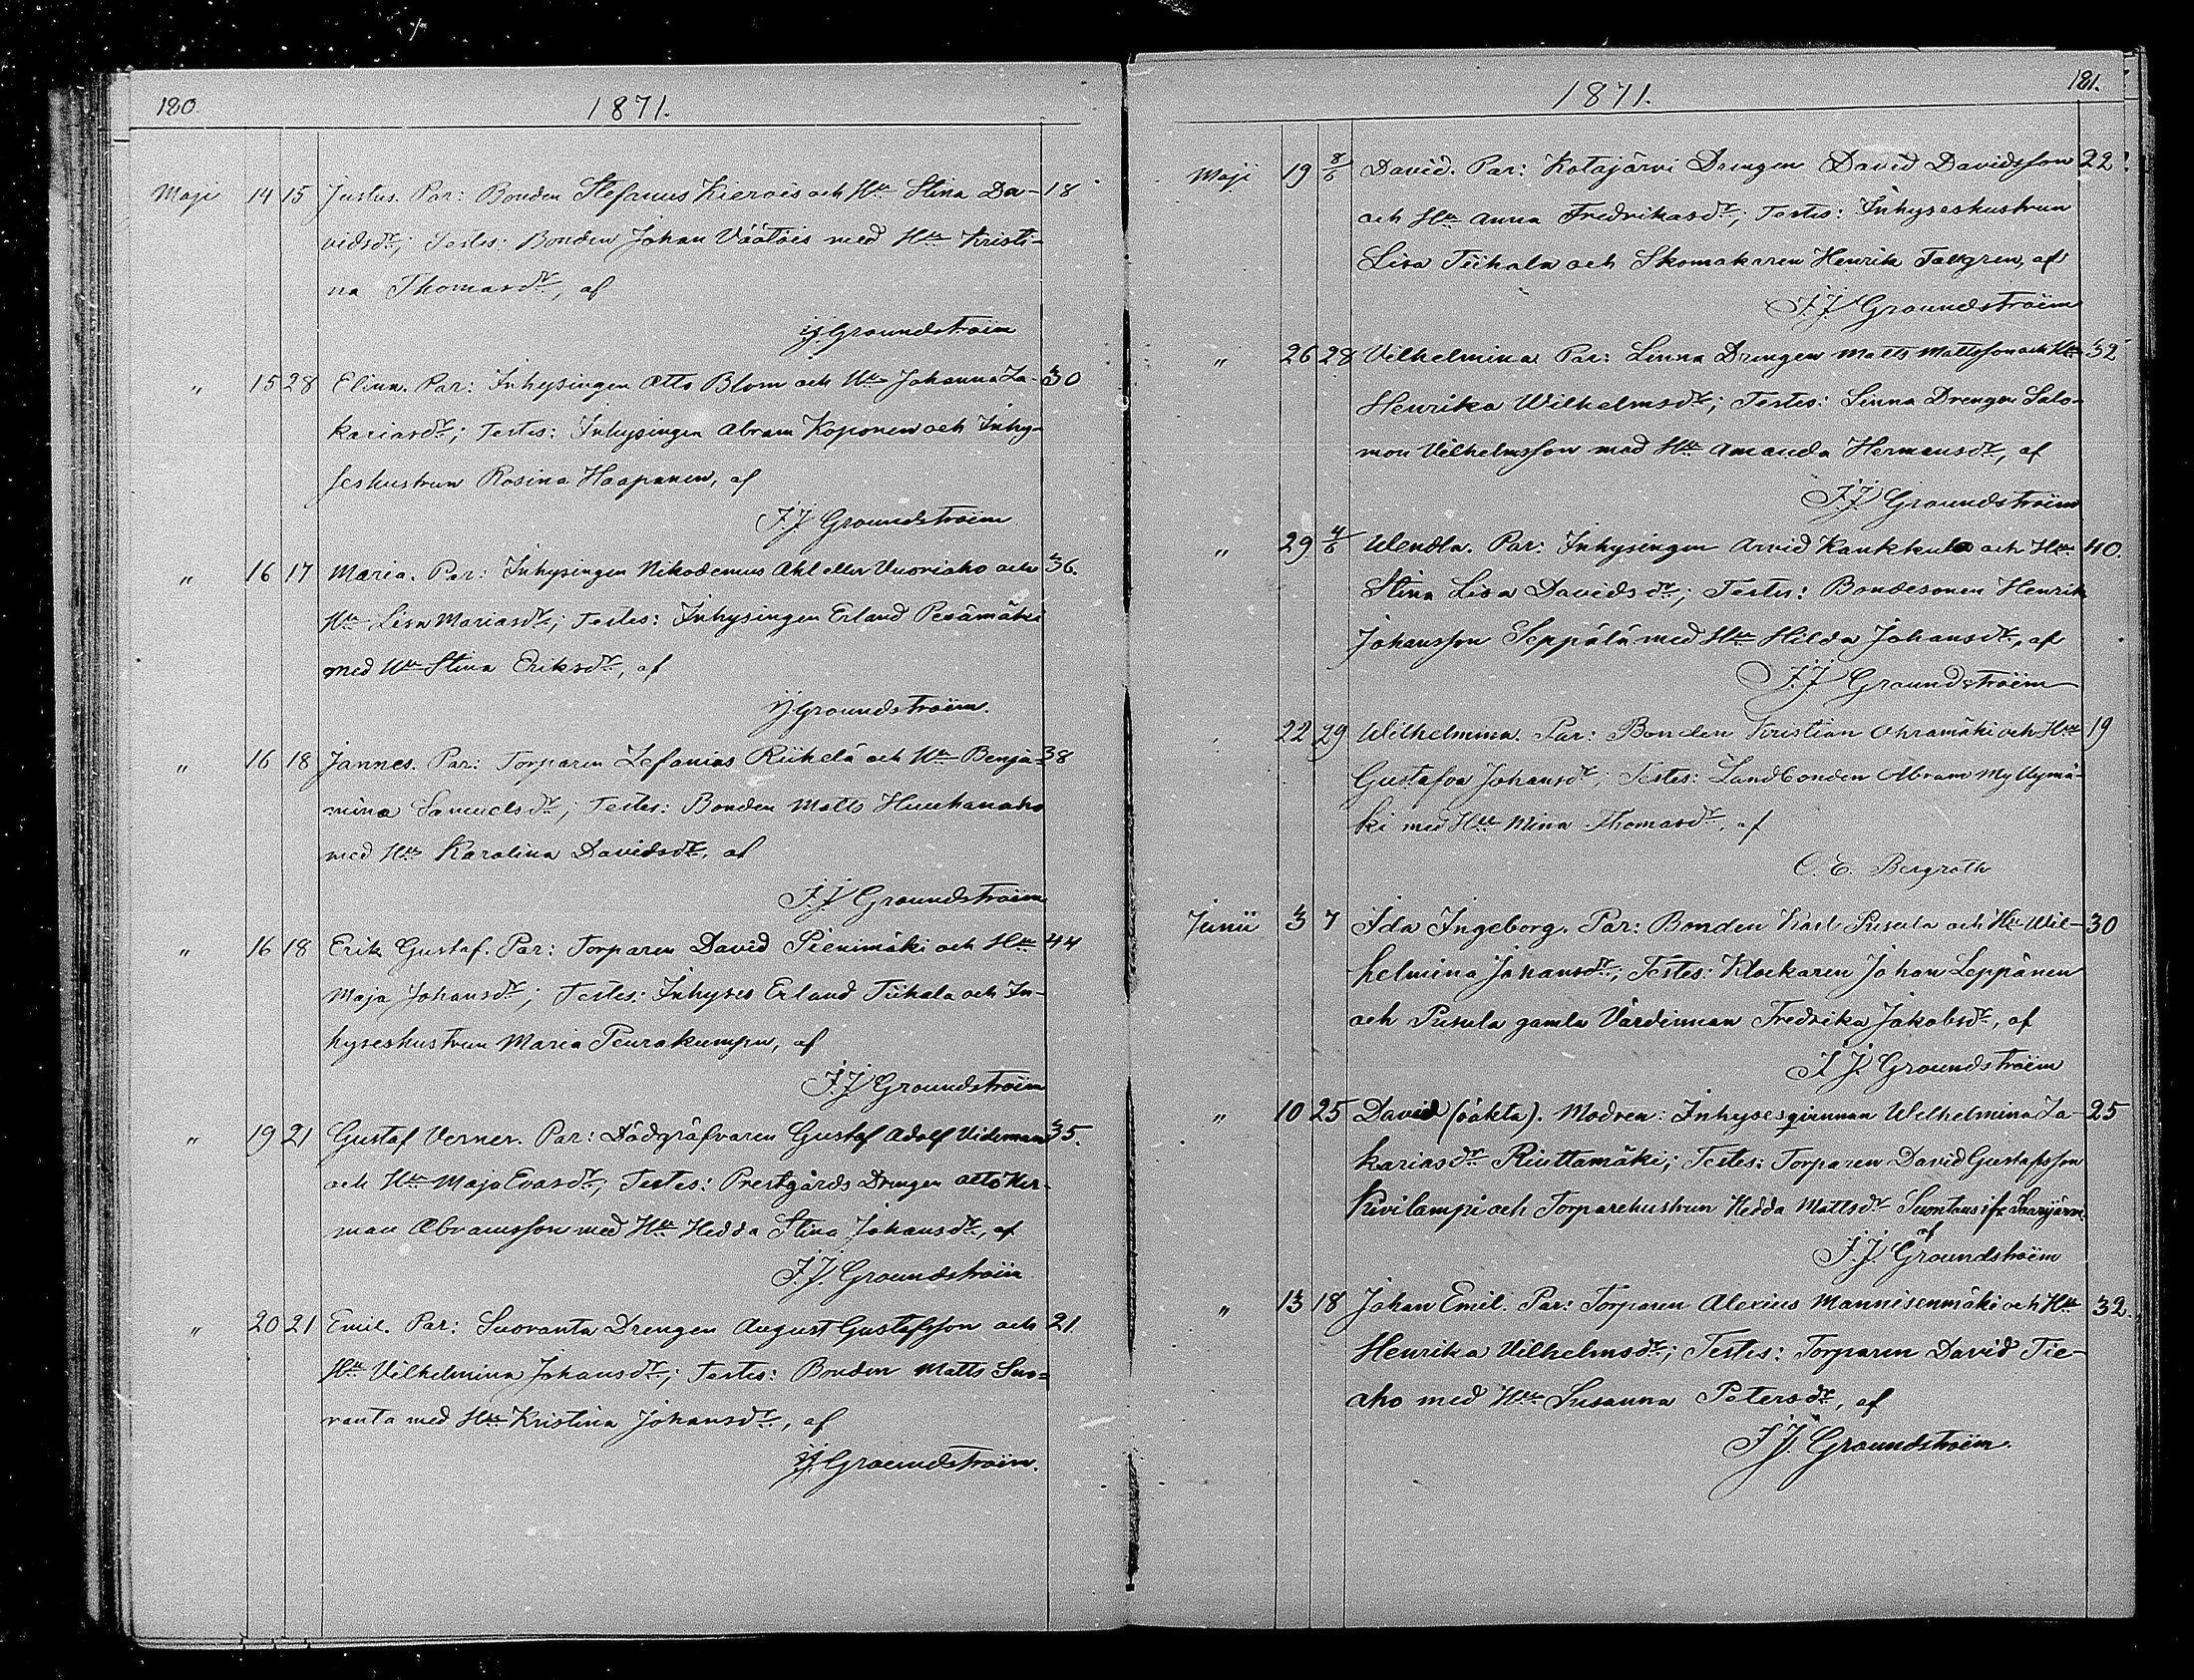 180.
1871.
Maji 14 15 Justus. Par: Bonden Stefanus Kierois och Hu Stina Da- 18
vidsdr; Testes: Bonden Johan Väätäis med Hu Kristi-
na Thomasdr, af
J.J. Groundstroëm
" 15 28 Elina. Par: Inhysingen Otto Blom och Hu Johanna Za- 30
kariasdr; Testes: Inhysingen Abram Koponen och Inhy-
seshustrun Rosina Haapanen, af
J.J. Groundstroëm
" 16 17 Maria. Par: Inhysingen Nikodemus Ahl eller Vuoriaho och 36.
Hu Lisa Mariasdr; Testes: Inhysingen Erland Perämäki
med Hu Stina Eriksdr, af
J.J. Groundstroëm.
" 16 18 Jannes. Par: Torparen Zefanias Riihelä och Hu Benja- 38
mina Samuelsdr; Testes: Bonden Matts Huuhanaho
med Hu Karolina Davidsdr, af
J.J. Groundstroëm
" 16 18 Erik Gustaf. Par: Torparen David Pienimäki och Hu 44
Maja Johansdr; Testes: Inhyses Erland Tiihala och In-
hyseshustrun Maria Peurakumpu, af
J.J. Groundstroëm
" 19 21 Gustaf Verner. Par: Dödgräfvaren Gustaf Adolf Videman 35.
och Hu Maja Evasdr; Testes: Prestgårds Drengen Otto Her-
man Abramsson med Hu Hedda Stina Johansdr, af
J.J. Groundstroëm
" 20 21 Emil. Par: Suovanta Drengen August Gustafsson och 21
Hu Vilhelmina Johansdr; Testes: Bonden Matts Suo-
vanta med Hu Kristina Johansdr, af
J.J. Groundstroëm.
181.
1871.
Maji 19 8/6 David. Par: Kotajärvi Drengen David Davidsson 22
och Hu Anna Fredrikasdr; Testes: Inhyseshustrun
Lisa Tiihala och Skomakaren Henrik Tallgren, af
J.J. Groundstroëm
" 26 28 Vilhelmina Par: Linna Drengen Matts Mattsson och Hu 32
Henrika Wilhelmsdr; Testes: Linna Drengen Salo-
mon Vilhelmsson med Hu Amanda Hermansdr, af
J.J. Groundstroëm
" 29 4/6 Wendla. Par: Inhysingen Arvid Kaukkula och Hu 40.
Stina Lisa Davidsdr; Testes: Bondesonen Henrik
Johansson Seppälä med Hu Hilda Johansdr, af
J.J. Groundstroëm
22 29 Wilhelmina. Par: Bonden Kristian Ohramäki och Hu 19
Gustafva Johansdr; Testes: Landbonden Abram Myllymä-
ki med Hu Mina Thomasdr, af
C. E. Bergroth
Junii 3 7 Ida Ingeborg. Par: Bonden Karl Pusula och Hu Wil- 30
helmina Johansdr; Testes: Klockaren Johan Leppänen
och Pusula gamla Värdinnan Fredrika Jakobsdr, af
J.J. Groundstroëm
" 10 25 David (oäkta). Modren: Inhysesqvinnan Wilhelmina Za- 25
kariasdr Riuttamäki; Testes: Torparen David Gustafsson
Kivilampi och Torparehustrun Hedda Mattsdr Suontausif. Saarijärvi.
af
J.J. Groundstroëm
" 13 18 Johan Emil. Par: Torparen Alexius Mannisenmäki och Hu 32.
Henrika Vilhelmsdr; Testes: Torparen David Tie-
aho med Hu Susanna Petersdr, af
J.J. Groundstroëm.